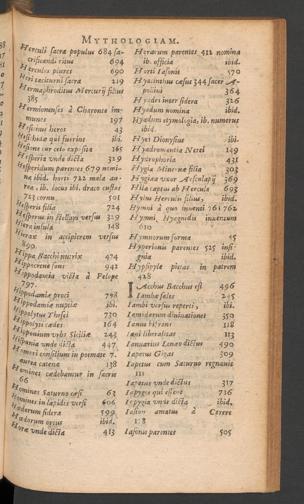 MYTHOLOGIAM.
Herculi sacra populus 684 sa-
crificandi ritus 694
Hercules plures 690
Heri taciturni sacra 219
Hermaphroditus Mercurij filius
385
Hermionenses à Charonte im-
munes 197
Hesionus heros 43
Hesionæ quæ fuerint ibi.
Hesione cur ceto exposita 165
Hesperia vnde dicta 329
Hesperidum parentes 679 nomi-
na ibid. horti 722 mala au-
rea, ib. locus ibi. draco custos
723 cornu 501
Hesperii filia 724
Hesperus in Hesperū versus 329
Hiera insula 148
Hierax in accipitrem versus
890.
Hippa Bacchi nutrix 474
Hippocrene fons 942
Hippodamia victa à Pelope
797.
Hippodamiæ proci 798
Hippodamiæ nuptiæ ibi.
Hippolytus Thesei 730
Hippolyti cædes 164
Hipponium vrbs Siciliæ 243
Hispania vnde dicta 447
Homeri consilium in poemate 7.
aurea catena 138
Homines cædebantur in sacris
66
Homines Saturno cæsi 63
Homines in lapides versi 606
Hædorum sidera 599
Hædorum ortus ibid.
Horæ vnde dictæ 413
Horarum parentes 412 nomina
ib. officia ibid.
Horti Iasonis 570
Hyacinthus cæsus 344 sacer A-
pollini 364
Hyades inter sidera 326
Hyadum nomina ibid.
Hyadum etymologia, ib. numerus
ibid.
Hyes Dionysius ibi.
Hydromantia Nerei 149
Hydrophoria 431
Hygia Mineruæ filia 303
Hygiæa vxor Aesculapij 369
Hila captus ab Hercule 693
Hylus Herculis filius, ibid.
Hymni à quo inuenti 761 762
Hymni, Hyagnidis inuentum
610
Hymnorum forma 45
Hyperionis parentes 525 insi-
gnia ibid.
Hypsipyle pietas in patrem
428
I
Iacchus Bacchus est 496
Iambe fales 245
Iambi versus reperti, ibi.
Iamidarum diuinationes 350
Ianus bifrons 118
Iani liberalitas 113
Ianuarius Lenæo dictus 490
Iapetus Gigas 309
Iapetus cum Saturno regnauit
111
Iapetus vnde dictus 317
Iapygia qui essent 736
Iapygia vnde dicta ibid.
Iasion amatus à Cerere
Iasonis parentes 505